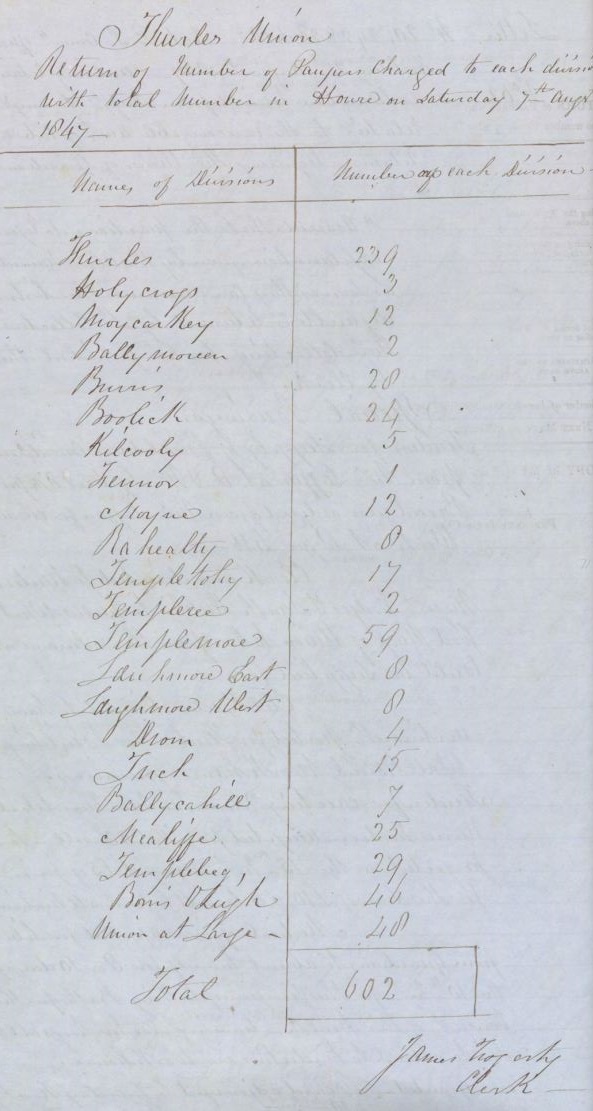 Thurles Union
Return of Number of Paupers Charged to each
with total Number in House on Saturday 7th Augt
1847
Names of Divisions Number of each Division
Thurles 239
Holycross 3
Moycarkey 12
Ballymoreen 2
Burris 28
Boolick 24
Kilcooly 5
Fennor 1
Moyne 12
Rahealty 8
Templetohy 17
Templeree 2
Templemore 59
Loughmore East 8
Loughmore West 8
Drom 4
Inch 15
Ballycahill 7
Mealiffe 25
Templebeg, 29
Borris OLeigh 46
Union at Large - 48
Total 602
James Fogarty
Clerk